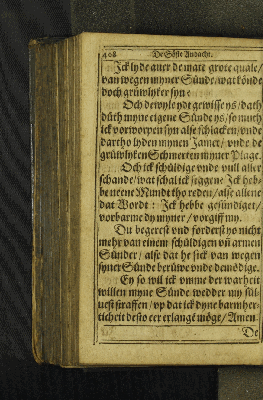 408 De Söste Andacht.
Ick lyde auer de mate grote quale/
van wegen myner Sünde/ wat könde
doch grüwlyker syn?
Och dewyle ydt gewisse ys/ dath
düth myne eigene Sünde ys/ so muth
ick vorworpen syn alse schlacken/ vnde
dartho lyden mynen Jamer/ vnde de
grüwlyken Schmerten myner Plage.
Och ick schüldige vnde vull aller
schande/ wat schal ick seggen? Ick heb-
be neene Mundt tho reden/ alse allene
dat Wordt: Ick hebbe gesündiget/
vorbarme dy myner/ vorgiff my.
Du begerest vnd forderst yo nicht
mehr van einem schüldigen vñ armen
Sünder/ alse dat he sick van wegen
syner Sünde berüwe vnde demödige.
Ey so wil ick vmme der warheit
willen myne Sünde wedder my sül-
uest straffen/ vp dat ick dyne barmher-
ticheit desto eer erlange möge/ Amen.
De